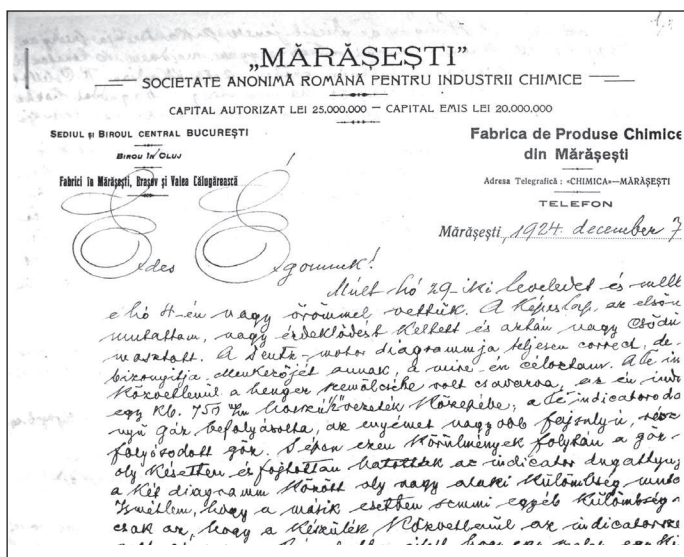 „MĂRĂȘEȘTI”
SOCIETATE ANONIMĂ ROMÂNĂ PENTRU INDUSTRII CHIMICE
CAPITAL AUTORIZAT LEI 25.000.000 — CAPITAL EMIS LEI 20.000.000
SEDIUL ȘI BIROUL CENTRAL BUCUREȘTI
BIROU ÎN CLUJ
Fabrici în Mărășești, Brașov și Valea Călugărească
Fabrica de Produse Chimice
din Mărășești
Adresa Telegrafică: «CHIMICA»—MĂRĂȘEȘTI
TELEFON
Mărășești, 1924. december 7
Édes Égomnek!
Múlt hó 29-iki leveledet és mell
e hó 4-én nagy örömmel vettük. A képeslap, az első
mutattam, nagy érdeklődést keltett és aztán nagy csődü
masztott. A Deutz-motor diagrammja teljesen correct, de
bizonyitja annak, a mire én céloztam. A te in
közvetlenül a henger volt csavarva, az én indi
egy kb. 750 m/m hosszú közepébe; a te indicatorodo
nyú gáz befolyásolta, az enyémet nagyobb fajsulyú,
folyósodott gőz. Éppen ezen körülmények folytán a gőz
oly későtten és fojtottan hatottak az indicator dugattyu
a két diagramm között oly nagy alaki külömbség muta
Ismétlem, hogy a másik esetben semmi egyéb külömbség
csak az, hogy a készülék közvetlenül az indicatorra